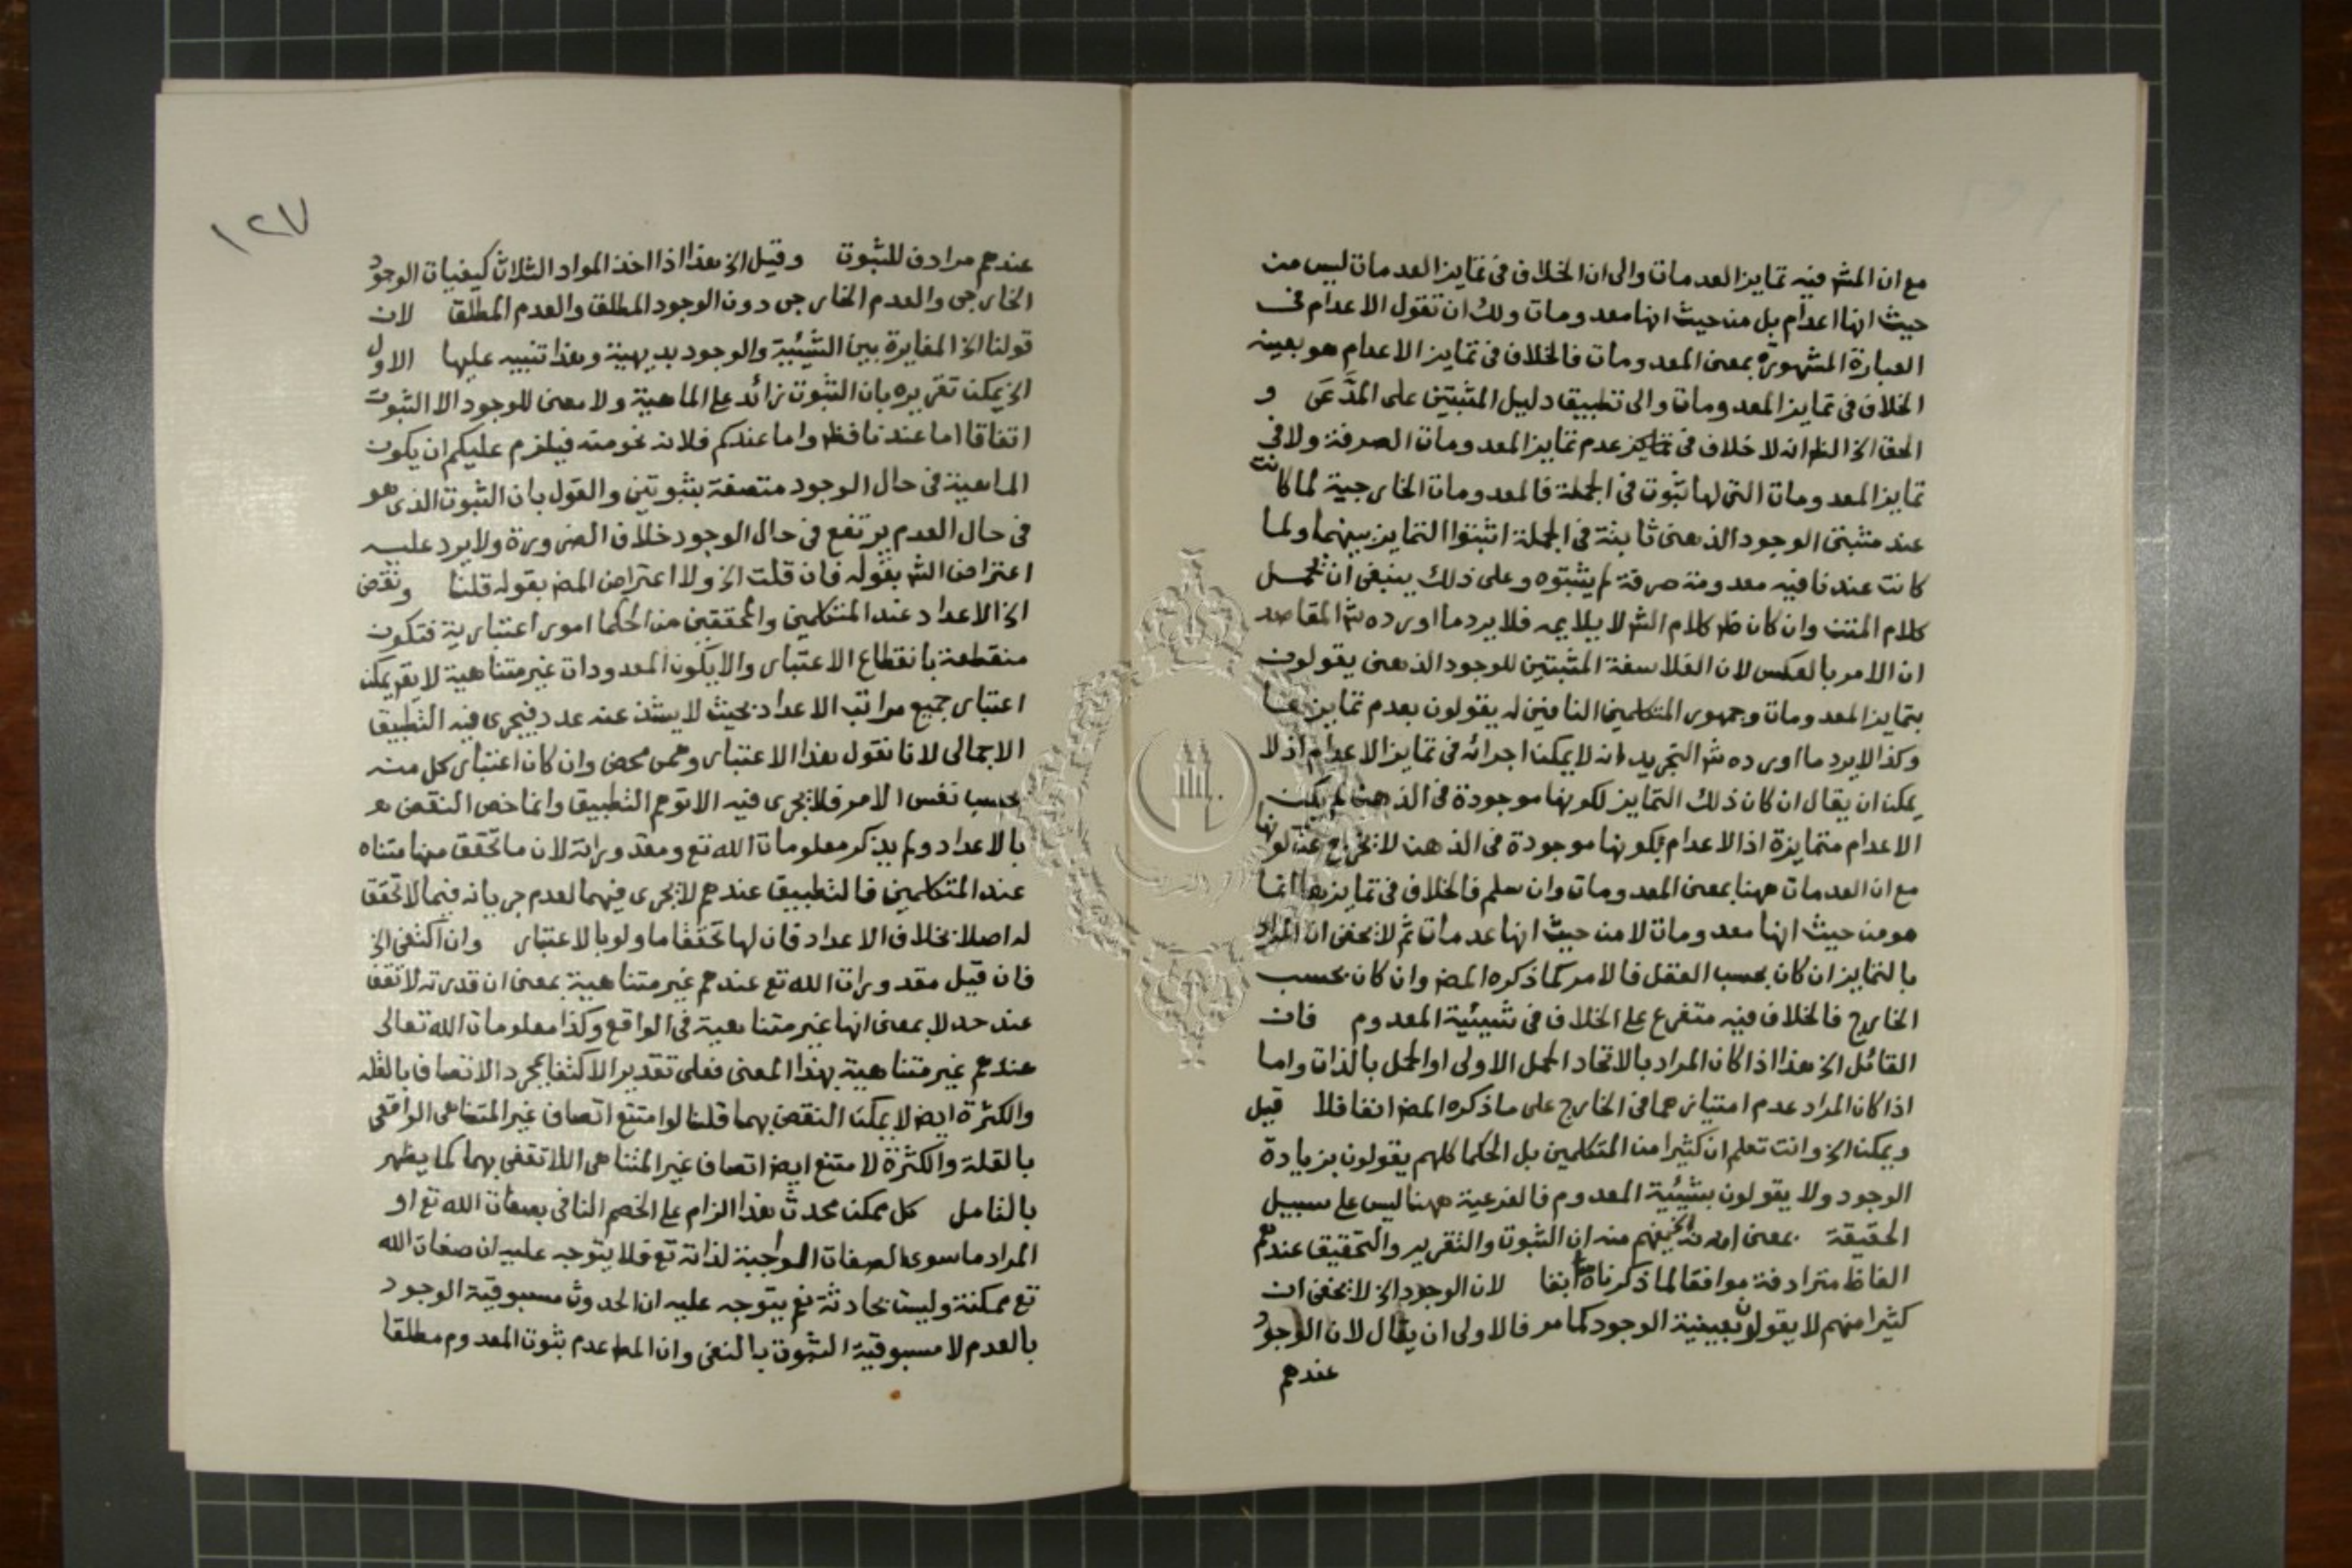 مع ان المش فيه تمايز العدمات والى ان الخلاف فى تمايز العدمات ليس من
حيث انها اعدام بل من حيث انها معدومات ولك ان تقول الاعدام فى
العبارة المشهورة بمعنى المعدومات فالخلاف فى تمايز الاعدام هو بعينه
الخلاف فى تمايز المعدومات والى تطبيق دليل المثبتين على المدَّعَى و
الحق الخ الظ انه لا خلاف فى عدم تمايز المعدومات الصرفة ولا فى
تمايز المعدومات التى لها ثبوت فى الجملة فالمعدومات الخارجية لما كانت
عند مثبتى الوجود الذهنى ثابتة فى الجملة اثبتوا التمايز بينهما ولما
كانت عند نافيه معدومة صرفة لم يثبتوه وعلى ذلك ينبغى ان يحمل
كلام المتن وان كان ظ كلام الش لا يلايمه فلا يرد ما اورده ش المقاصد
ان الامر بالعكس لان الفلاسفة المثبتين للوجود الذهنى يقولون
بتمايز المعدومات وجمهور المتكلمين النافين له يقولون بعدم تمايزها
وكذا لا يرد ما اورده ش التجريد انه لا يمكن اجرائه فى تمايز الاعدام اذ لا
يمكن ان يقال ان كان ذلك التمايز لكونها موجودة فى الذهن لم يكن
الاعدام متمايزة اذ الاعدام بكونها موجودة فى الذهن لا تخرج عن كونها
مع ان العدمات ههنا بمعنى المعدومات وان سلم فالخلاف فى تمايزها انما
هو من حيث انها معدومات لا من حيث انها عدمات ثم لا يخفى ان المراد
بالتمايز ان كان بحسب العقل فالامر كما ذكره المص وان كان بحسب
الخارج فالخلاف فيه متفرع على الخلاف فى شيئية المعدوم فان
القائل الخ هذا اذا كان المراد بالاتحاد الحمل الاولى او الحمل بالذات واما
اذا كان المراد عدم امتيازهما فى الخارج على ما ذكره المص انفا فلا قيل
ويمكن الخ وانت تعلم ان كثيرا من المتكلمين بل الحكما كلهم يقولون بزيادة
الوجود ولا يقولون بشيئية المعدوم فالفرعية ههنا ليس على سبيل
الحقيقة بمعنى انه يفهم منه ان الثبوت والتقرير والتحقيق عندهم
الفاظ مترادفة موافقا لما ذكرناه انفا لان الوجود الخ لا يخفى ان
كثيرا منهم لا يقولون بعينية الوجود كما مر فالاولى ان يقال لان الوجود
عندهم
١٢٧
عندهم مرادف للثبوت وقيل الخ هذا اذا اخذ المواد الثلاث كيفيات الوجود
الخارجى والعدم الخارجى دون الوجود المطلق والعدم المطلق لان
قولنا الخ المغايرة بين الشيئية والوجود بديهية وهذا تنبيه عليها الاول
الخ يمكن تقريره بان الثبوت زائد على الماهية ولا معنى للوجود الا الثبوت
اتفاقا اما عندنا فظ واما عندكم فلانه نحو منه فيلزم عليكم ان يكون
الماهية فى حال الوجود متصفة بثبوتين والقول بان الثبوت الذى هو
فى حال العدم يرتفع فى حال الوجود خلاف الضرورة ولا يرد عليه
اعتراض الش بقوله فان قلت الخ ولا اعتراض المص بقوله قلنا ونقض
الخ الاعداد عند المتكلمين والمحققين من الحكما امور اعتبارية فتكون
منقطعة بانقطاع الاعتبار والا يكون المعدودات غير متناهية لا يقم يمكن
اعتبار جميع مراتب الاعداد بحيث لا يشذ عنه عدد فيجرى فيه التطبيق
الاجمالى لانا نقول هذا الاعتبار وهمى محض وان كان اعتبار كل منه
بحسب نفس الامر فلا يجرى فيه الا توهم التطبيق وانما خص النقض
بالاعداد ولم يذكر معلومات الله تع ومقدوراته لان ما تحقق منها متناه
عند المتكلمين فالتطبيق عندهم لا يجرى فيهما لعدم جريانه فيما لا تحقق
له اصلا بخلاف الاعداد فان لها تحققا ما ولو بالاعتبار وان اكتفى الخ
فان قيل مقدورات الله تع عندهم غير متناهية بمعنى ان قدرته لا تقف
عند حد لا بمعنى انها غير متناهية فى الواقع وكذا معلومات الله تعالى
عندهم غير متناهية بهذا المعنى فعلى تقدير الاكتفا بمجرد الاتصاف بالقلة
والكثرة ايض لا يمكن النقض بهما قلنا لو امتنع اتصاف غير المتناهى الواقعى
بالقلة والكثرة لامتنع ايض اتصاف غير المتناهى اللاتقفى بهما كما يظهر
بالتامل كل ممكن محدث هذا الزام على الخصم النافى بصفات الله تع او
المراد ما سوى الصفات الواجبة لذاته تع فلا يتوجه عليه ان صفات الله
تع ممكنة وليست بحادثة نعم يتوجه عليه ان الحدوث مسبوقية الوجود
بالعدم لا مسبوقية الثبوت بالنفى وان المط عدم ثبوت المعدوم مطلقا